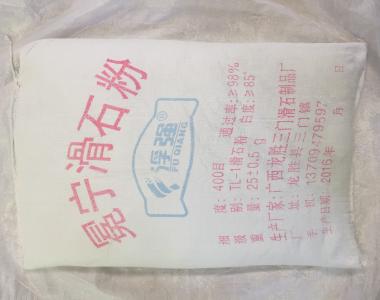 冕宁滑石粉
®
浮强
FU QIANG
细 度: 400目 通过率:≥98%
级 别: TL-1滑石粉 白度:≥85°
重 量: 25±0.5g
生产厂家: 广西龙胜三门滑石制品厂
厂 址: 龙胜县三门镇
手 机: 13709479597
生产日期: 2016年 月 日